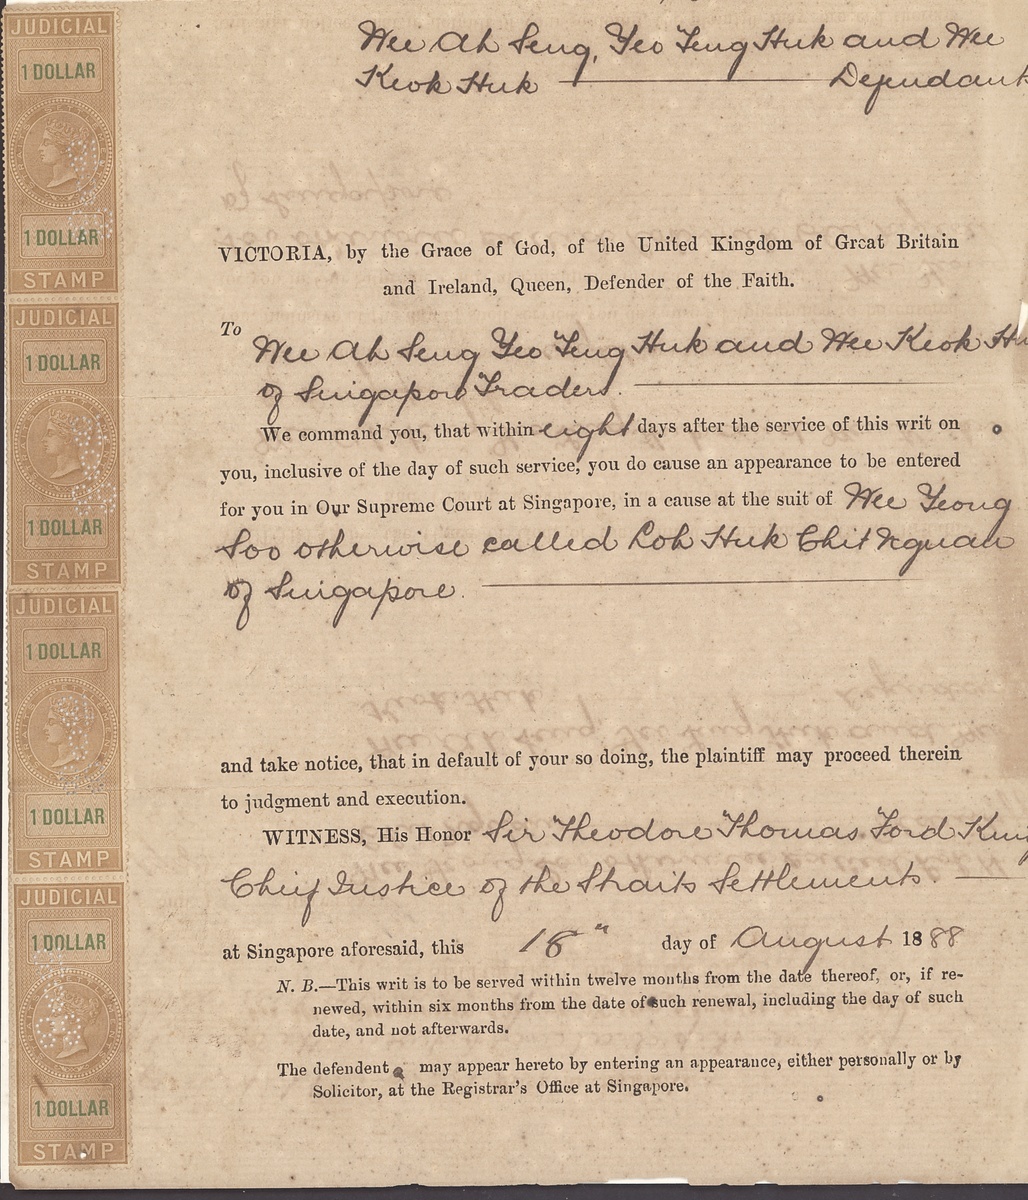 JUDICIAL
1 DOLLAR
1 DOLLAR
STAMP
JUDICIAL
1 DOLLAR
1 DOLLAR
STAMP
JUDICIAL
1 DOLLAR
1 DOLLAR
STAMP
JUDICIAL
1 DOLLAR
1 DOLLAR
STAMP
Wee Ah Seng, Yeo Teng Huk and Wee
Keok Huk Defendant
VICTORIA, by the Grace of God, of the United Kingdom of Great Britain
and Ireland, Queen, Defender of the Faith.
To
Wee Ah Seng Yeo Teng Huk and Wee Keok Hu
of Singapore Traders.
We command you, that within eight days after the service of this writ on
you, inclusive of the day of such service, you do cause an appearance to be entered
for you in Our Supreme Court at Singapore, in a cause at the suit of Wee Yeong
Soo otherwise called Loh Huk Chit Nguan
of Singapore.
and take notice, that in default of your so doing, the plaintiff may proceed therein
to judgment and execution.
WITNESS, His Honor Sir Theodore Thomas Ford
Chief Justice of the Straits Settlements.
at Singapore aforesaid, this 18" day of August 1888
N. B.—This writ is to be served within twelve months from the date thereof, or, if re-
newed, within six months from the date of such renewal, including the day of such
date, and not afterwards.
The defendent may appear hereto by entering an appearance, either personally or by
Solicitor, at the Registrar's Office at Singapore.